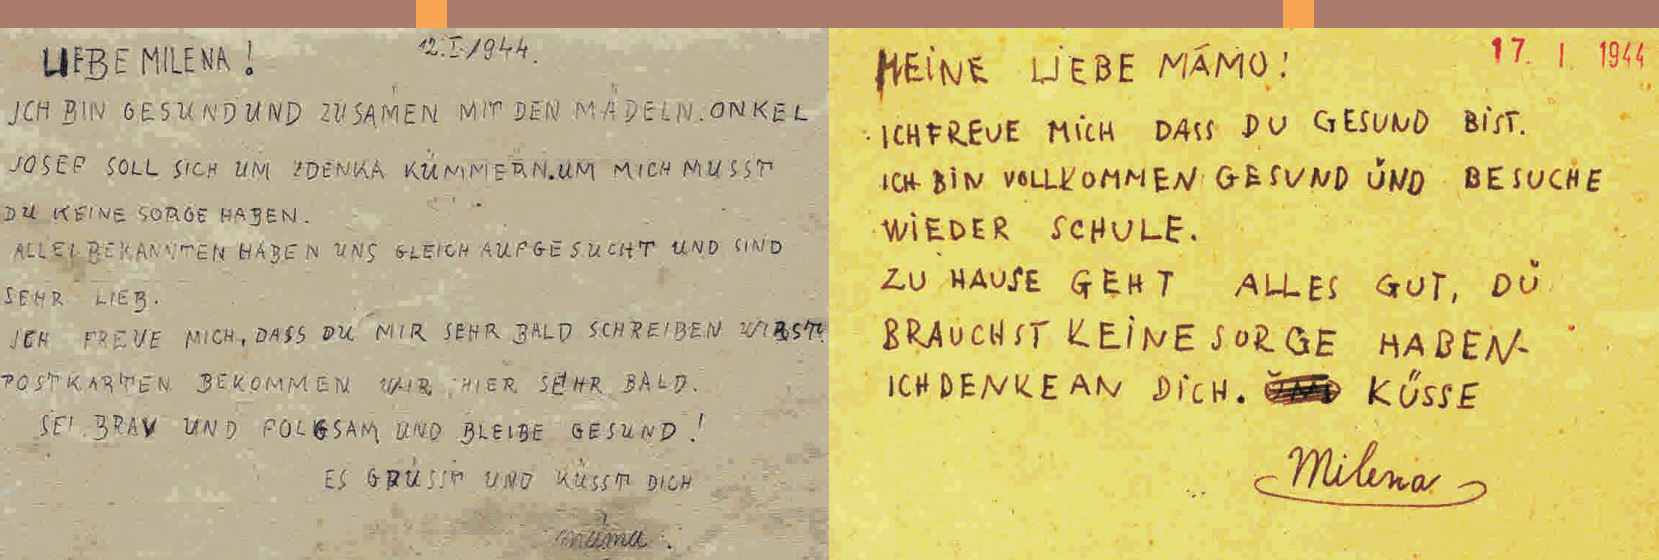 LIEBE MILENA! 12.I.1944.
ICH BIN GESUND UND ZUSAMEN MIT DEN MÄDELN. ONKEL
JOSEF SOLL SICH UM ZDENKA KÜMMERN. UM MICH MUSST
DU KEINE SORGE HABEN.
ALLE BEKANNTEN HABEN UNS GLEICH AUFGESUCHT UND SIND
SEHR LIEB.
ICH FREUE MICH, DASS DU MIR SEHR BALD SCHREIBEN WIRST.
POSTKARTEN BEKOMMEN WIR HIER SEHR BALD.
SEI BRAV UND FOLGSAM UND BLEIBE GESUND!
ES GRÜSST UND KÜSST DICH
máma.
MEINE LIEBE MÁMO! 17. I. 1944
ICH FREUE MICH DASS DU GESUND BIST.
ICH BIN VOLLKOMMEN GESUND ŬND BESUCHE
WIEDER SCHULE.
ZU HAUSE GEHT ALLES GUT, DŬ
BRAUCHST KEINE SORGE HABEN-
ICH DENKE AN DICH. KÜSSE
Milena